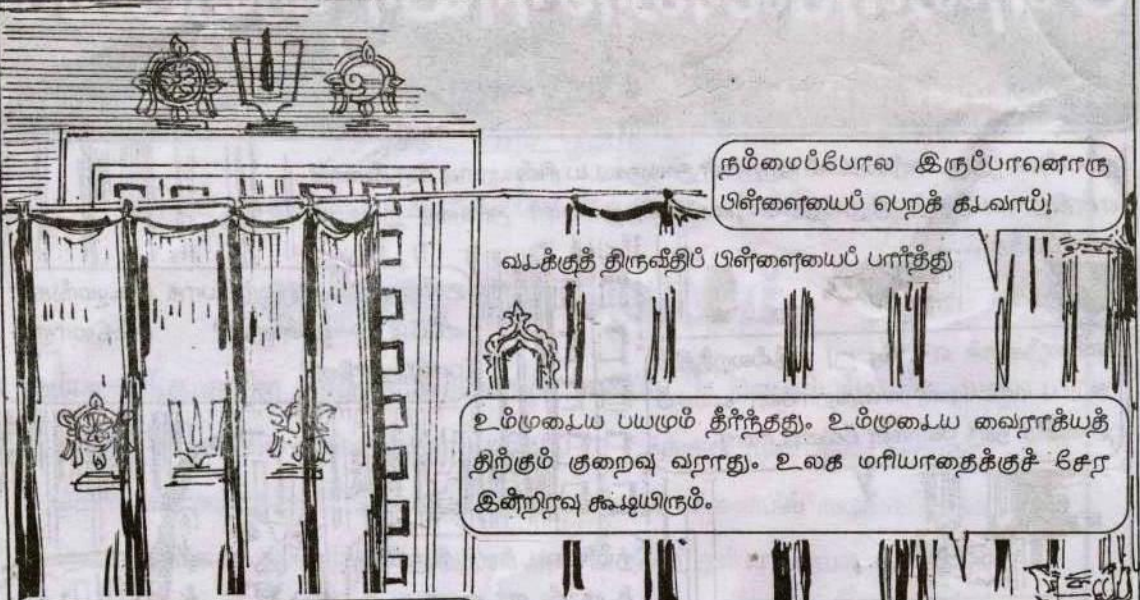 நம்மைப்போல இருப்பானொரு
பிள்ளையைப் பெறக் கடவாய்!
வடக்குத் திருவீதிப் பிள்ளையைப் பார்த்து
உம்முடைய பயமும் தீர்ந்தது. உம்முடைய வைராக்யத்
திற்கும் குறைவு வராது. உலக மரியாதைக்குச் சேர
இன்றிரவு கூடியிரும்.